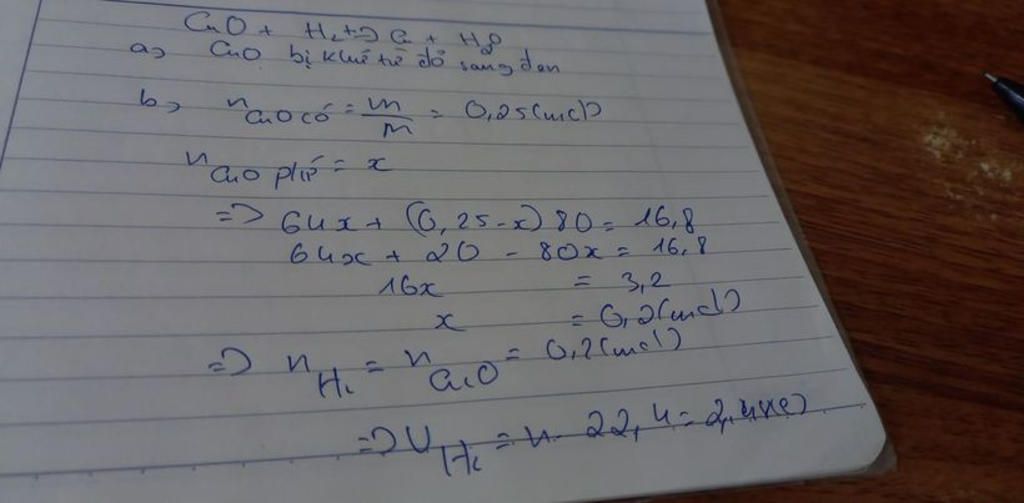 CuO + H₂ t→ Cu + H₂O
a, CuO bị khử từ đỏ sang đen
b, n CuO có = m/M = 0,25(mol)
n CuO pứ = x
=> 64x + (0,25-x)80 = 16,8
64x + 20 - 80x = 16,8
16x = 3,2
x = 0,2(mol)
=> n H₂ = n CuO = 0,2(mol)
=> V H₂ = n. 22,4 =